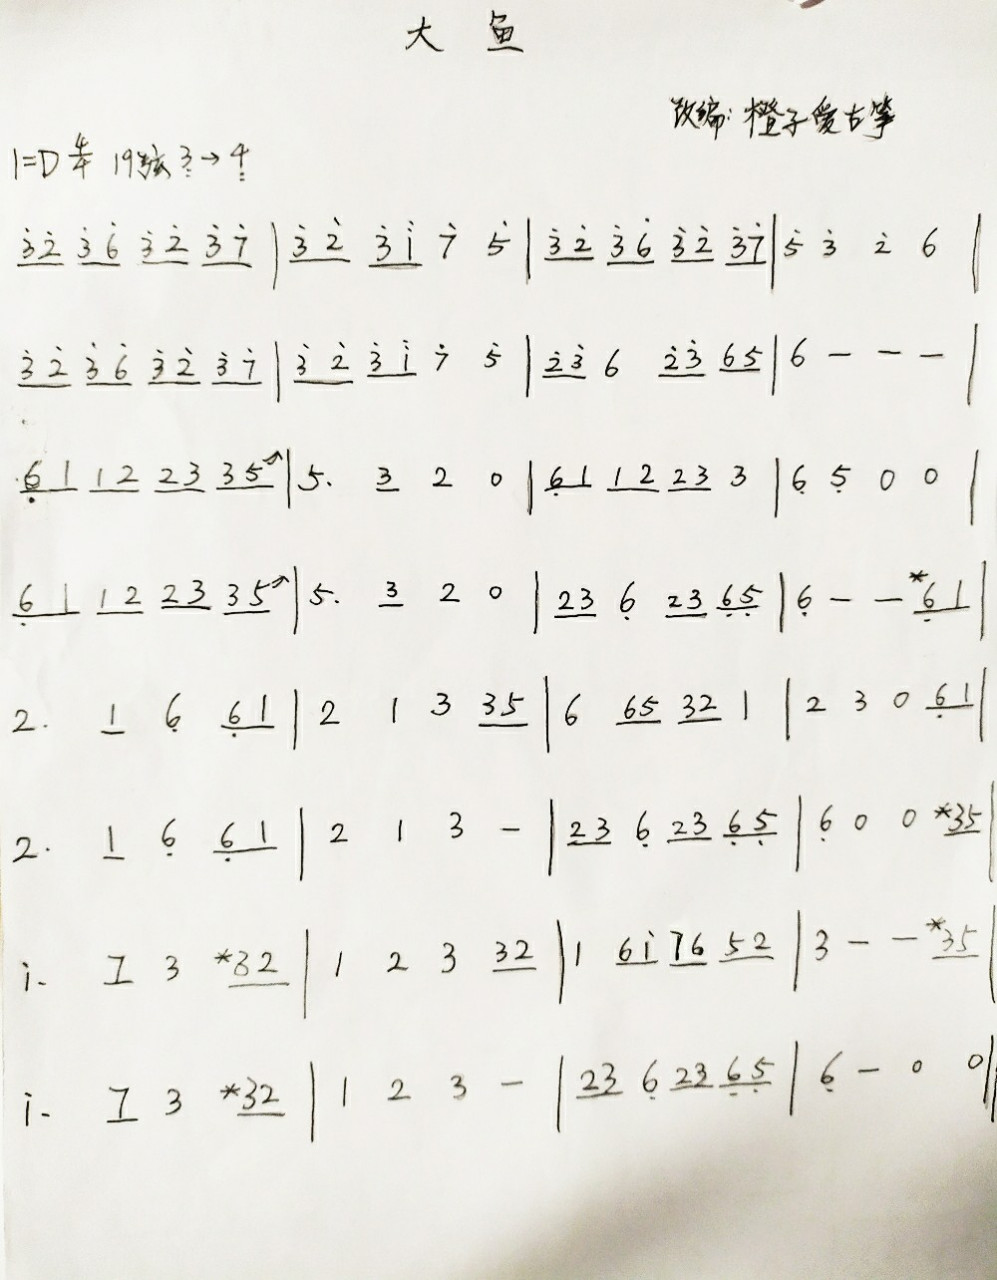 大 鱼
改编: 橙子爱古筝
1=D 4/4 19弦 3̣→4̣
3̇2̇ 3̇6̇ 3̇2̇ 3̇7̇ | 3̇2̇ 3̇1̇ 7̇ 5̇ | 3̇2̇ 3̇6̇ 3̇2̇ 3̇7̇ | 5̇ 3̇ 2̇ 6 |
3̇2̇ 3̇6̇ 3̇2̇ 3̇7̇ | 3̇2̇ 3̇1̇ 7̇ 5̇ | 2̇3̇ 6 2̇3̇ 65 | 6 — — — |
6̣1 12 23 35↗ | 5. 3 2 0 | 6̣1 12 23 3 | 6̣ 5̣ 0 0 |
6̣1 12 23 35↗ | 5. 3 2 0 | 23 6̣ 23 6̣5̣ | 6̣ — — *6̣1 |
2. 1 6̣ 6̣1 | 2 1 3 35 | 6 65 32 1 | 2 3 0 6̣1 |
2. 1 6̣ 6̣1 | 2 1 3 — | 23 6̣ 23 6̣5̣ | 6̣ 0 0 *35 |
1̇. 7 3 *32 | 1 2 3 32 | 1 61̇ 76 52 | 3 — — *35 |
1̇. 7 3 *32 | 1 2 3 — | 23 6̣ 23 6̣5̣ | 6̣ — 0 0 ‖